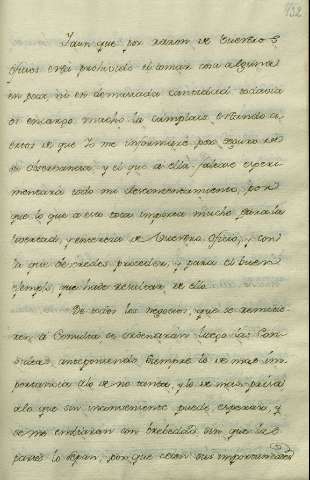 432
Y aun que por razon de vuestros
oficios está prohivido el tomar cosa alguna
en poca, ni en demasiada cantidad todavia
os encargo mucho la cumplais estando ci-
ertos de que Yo me informaré para
su observancia, y el que á ella faltare experi-
mentará todo mi descontentamiento, por
que lo que á esto toca importa mucho para la
livertad, y entereza de Vuestro Oficio, y con
la que deveredes proceder, y para el buen
egemplo, que hade resultar de ello
De todos los negocios, que se remitie-
ren, á Consulta se ordenarán luego las Con-
sultas, anteponiendo siempre lo de mas im-
portancia á lo de no tanta, y lo de mas priesa
á lo que sin inconveniente puede esperar, y
se me embiarán con brebedad, sin que las
partes lo sepan, por que cesen sus importunidades